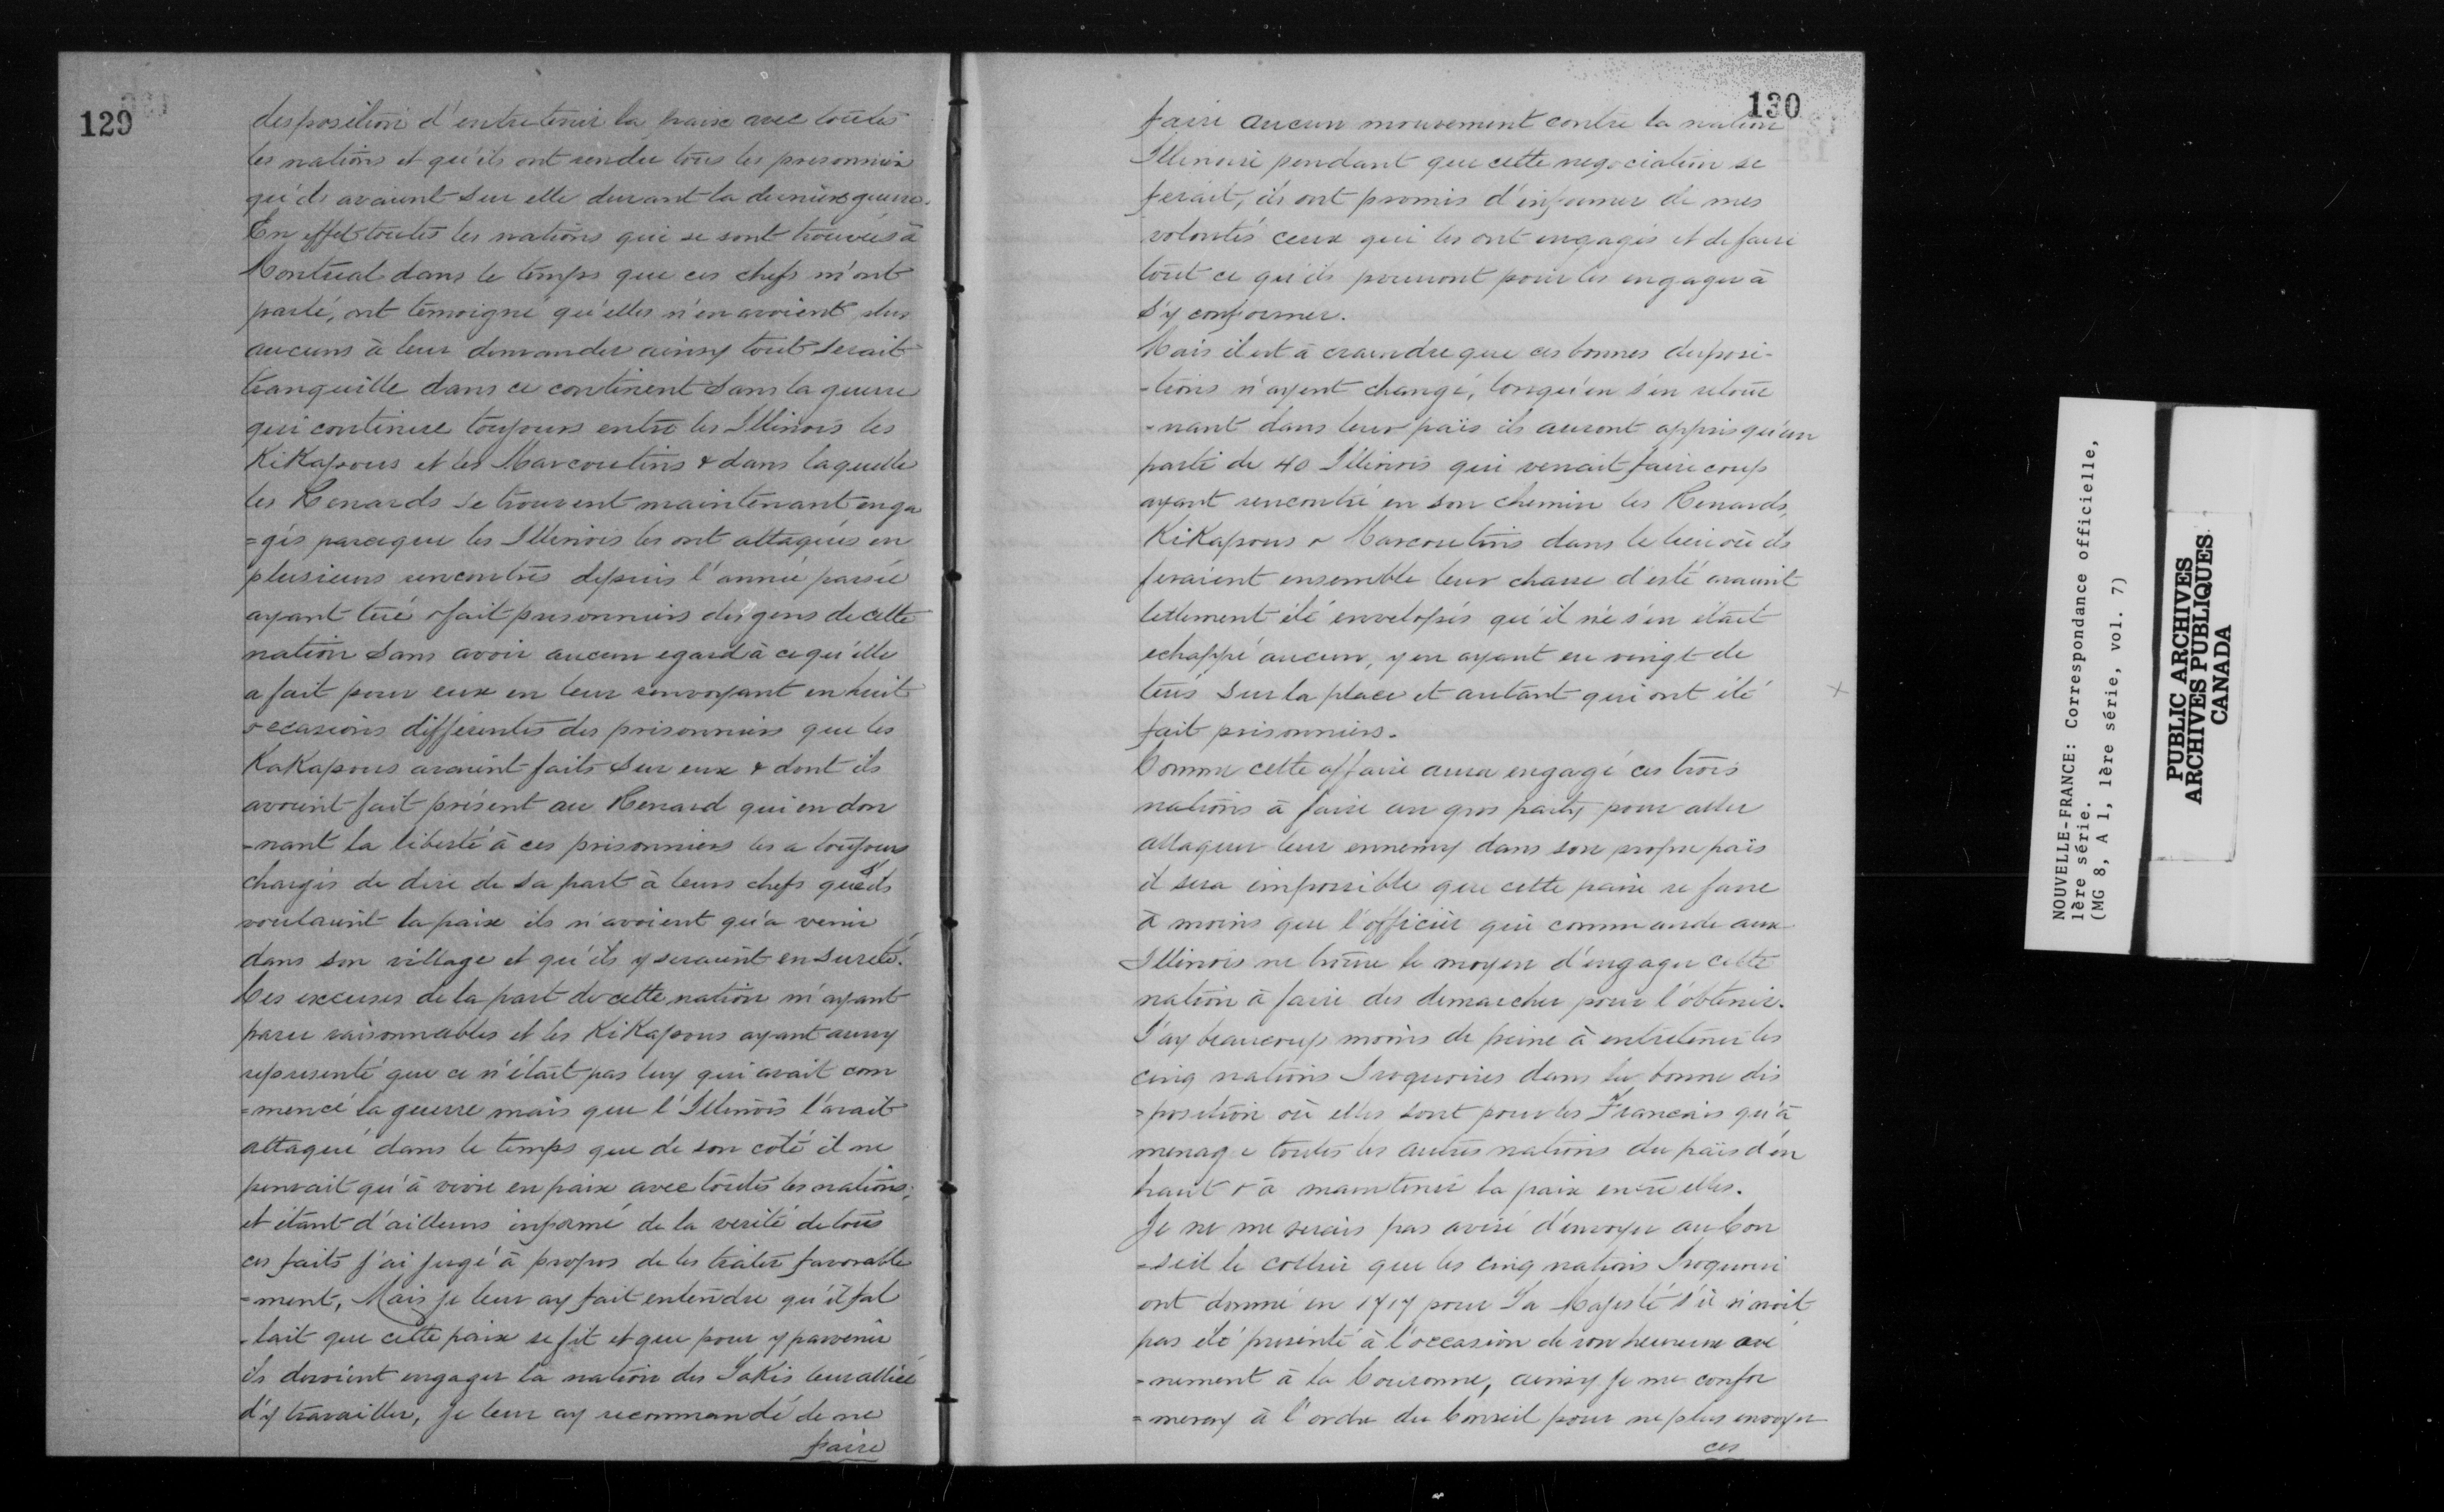 129
desposition d'entretenir la paix avec toutes
les nations et qu'ils ont rendu tous les prisonniers
qu'ils avaient sur elle durant la dernière guerre.
En effet toutes les nations qui se sont trouvées à
Montreal dans le temps que ces chefs m'ont
parlé, ont temoigné qu'elles n'en avoient plus
aucuns à leur demander ainsy tout serait
tranquille dans ce continent sans la guerre
qui continue toujours entre les Illinois les
KiKapous et les Marcoutins & dans laquelle
les Renards se trouvent maintenant enga
=gés parceque les Illinois les ont attaqués en
plusieurs rencontres depuis l'année passée
ayant tué & fait prisonniers des gens de cette
nation sans avoir aucun egard à ce qu'elle
a fait pour eux en leur renvoyant en huit
occasions différentes des prisonniers que les
KaKapous avaient faits sur eux & dont ils
avoient fait présent au Renard qui en don
-nant la liberté à ces prisonniers les a toujours
chargés de dire de sa part à leurs chefs que s'ils
voulaient la paix ils n'avoient qu'a venir
dans son village et qu'ils y seraient en sureté.
Ces excuses de la part de cette nation m'ayant
paru raisonnables et les KiKapous ayant aussy
representé que ce n'était pas luy qui avait com
=mencé la guerre mais que l'Illinois l'avait
attaqué dans le temps que de son coté il ne
pensait qu'à vivre en paix avec toutes les nations;
et étant d'ailleurs informé de la verité de tous
ces faits j'ai jugé à propos de les traiter favorable
=ment, Mais je leur ay fait entendre qu'il fal
-lait que cette paix se fit et que pour y parvenir
ils devoient engager la nation des SaKis leur alliée
d'y travailler, je leur ay recommandé de ne
faire
130
faire aucun mouvement contre la nation
Illinoise pendant que cette negociation se
ferait, ils ont promis d'informer de mes
volontés ceux qui les ont engagés et de faire
tout ce qu'ils pourront pour les engager à
s'y conformer.
Mais il est à craindre que ces bonnes disposi-
-tions n'ayent changé, lorsqu'en s'en retour
-nant dans leur païs ils auront appris qu'un
parti de 40 Illinois qui venait faire coup
ayant rencontré en son chemin les Renards,
KiKapous & Marcoutins dans le lieu où ils
feraient ensemble leur chasse d'esté avaient
tellement été envelopés qu'il ne s'en était
echappé aucun, y en ayant eu vingt de
tués sur la place et autant qui ont été
fait prisonniers.
Comme cette affaire aura engagé ces trois
nations à faire un gros party pour aller
attaquer leur ennemy dans son propre païs
il sera impossible que cette paix se fasse
à moins que l'officier qui commande aux
Illinois ne trouve le moyen d'engager cette
nation à faire des demarches pour l'obtenir.
J'ay beaucoup moins de peine à entretenir les
cinq nations Iroquoises dans la bonne dis
=position où elles sont pour les Francais qu'à
menage toutes les autres nations du païs d'en
haut & à maintenir la paix entre elles.
Je ne me serais pas avisé d'envoyer au Con
=seil le collier que les cinq nations Iroquoise
ont donné en 1717 pour Sa Majesté s'il n'avoit
pas été présenté à l'occasion de son heureux ave
=nement à la Couronne, ainsy je me confor
=meray à l'ordre du Conseil pour ne plus envoyer
ces
NOUVELLE-FRANCE: Correspondance officielle,
1ère série.
(MG 8, A 1, 1ère série, vol. 7)
PUBLIC ARCHIVES
ARCHIVES PUBLIQUES
CANADA